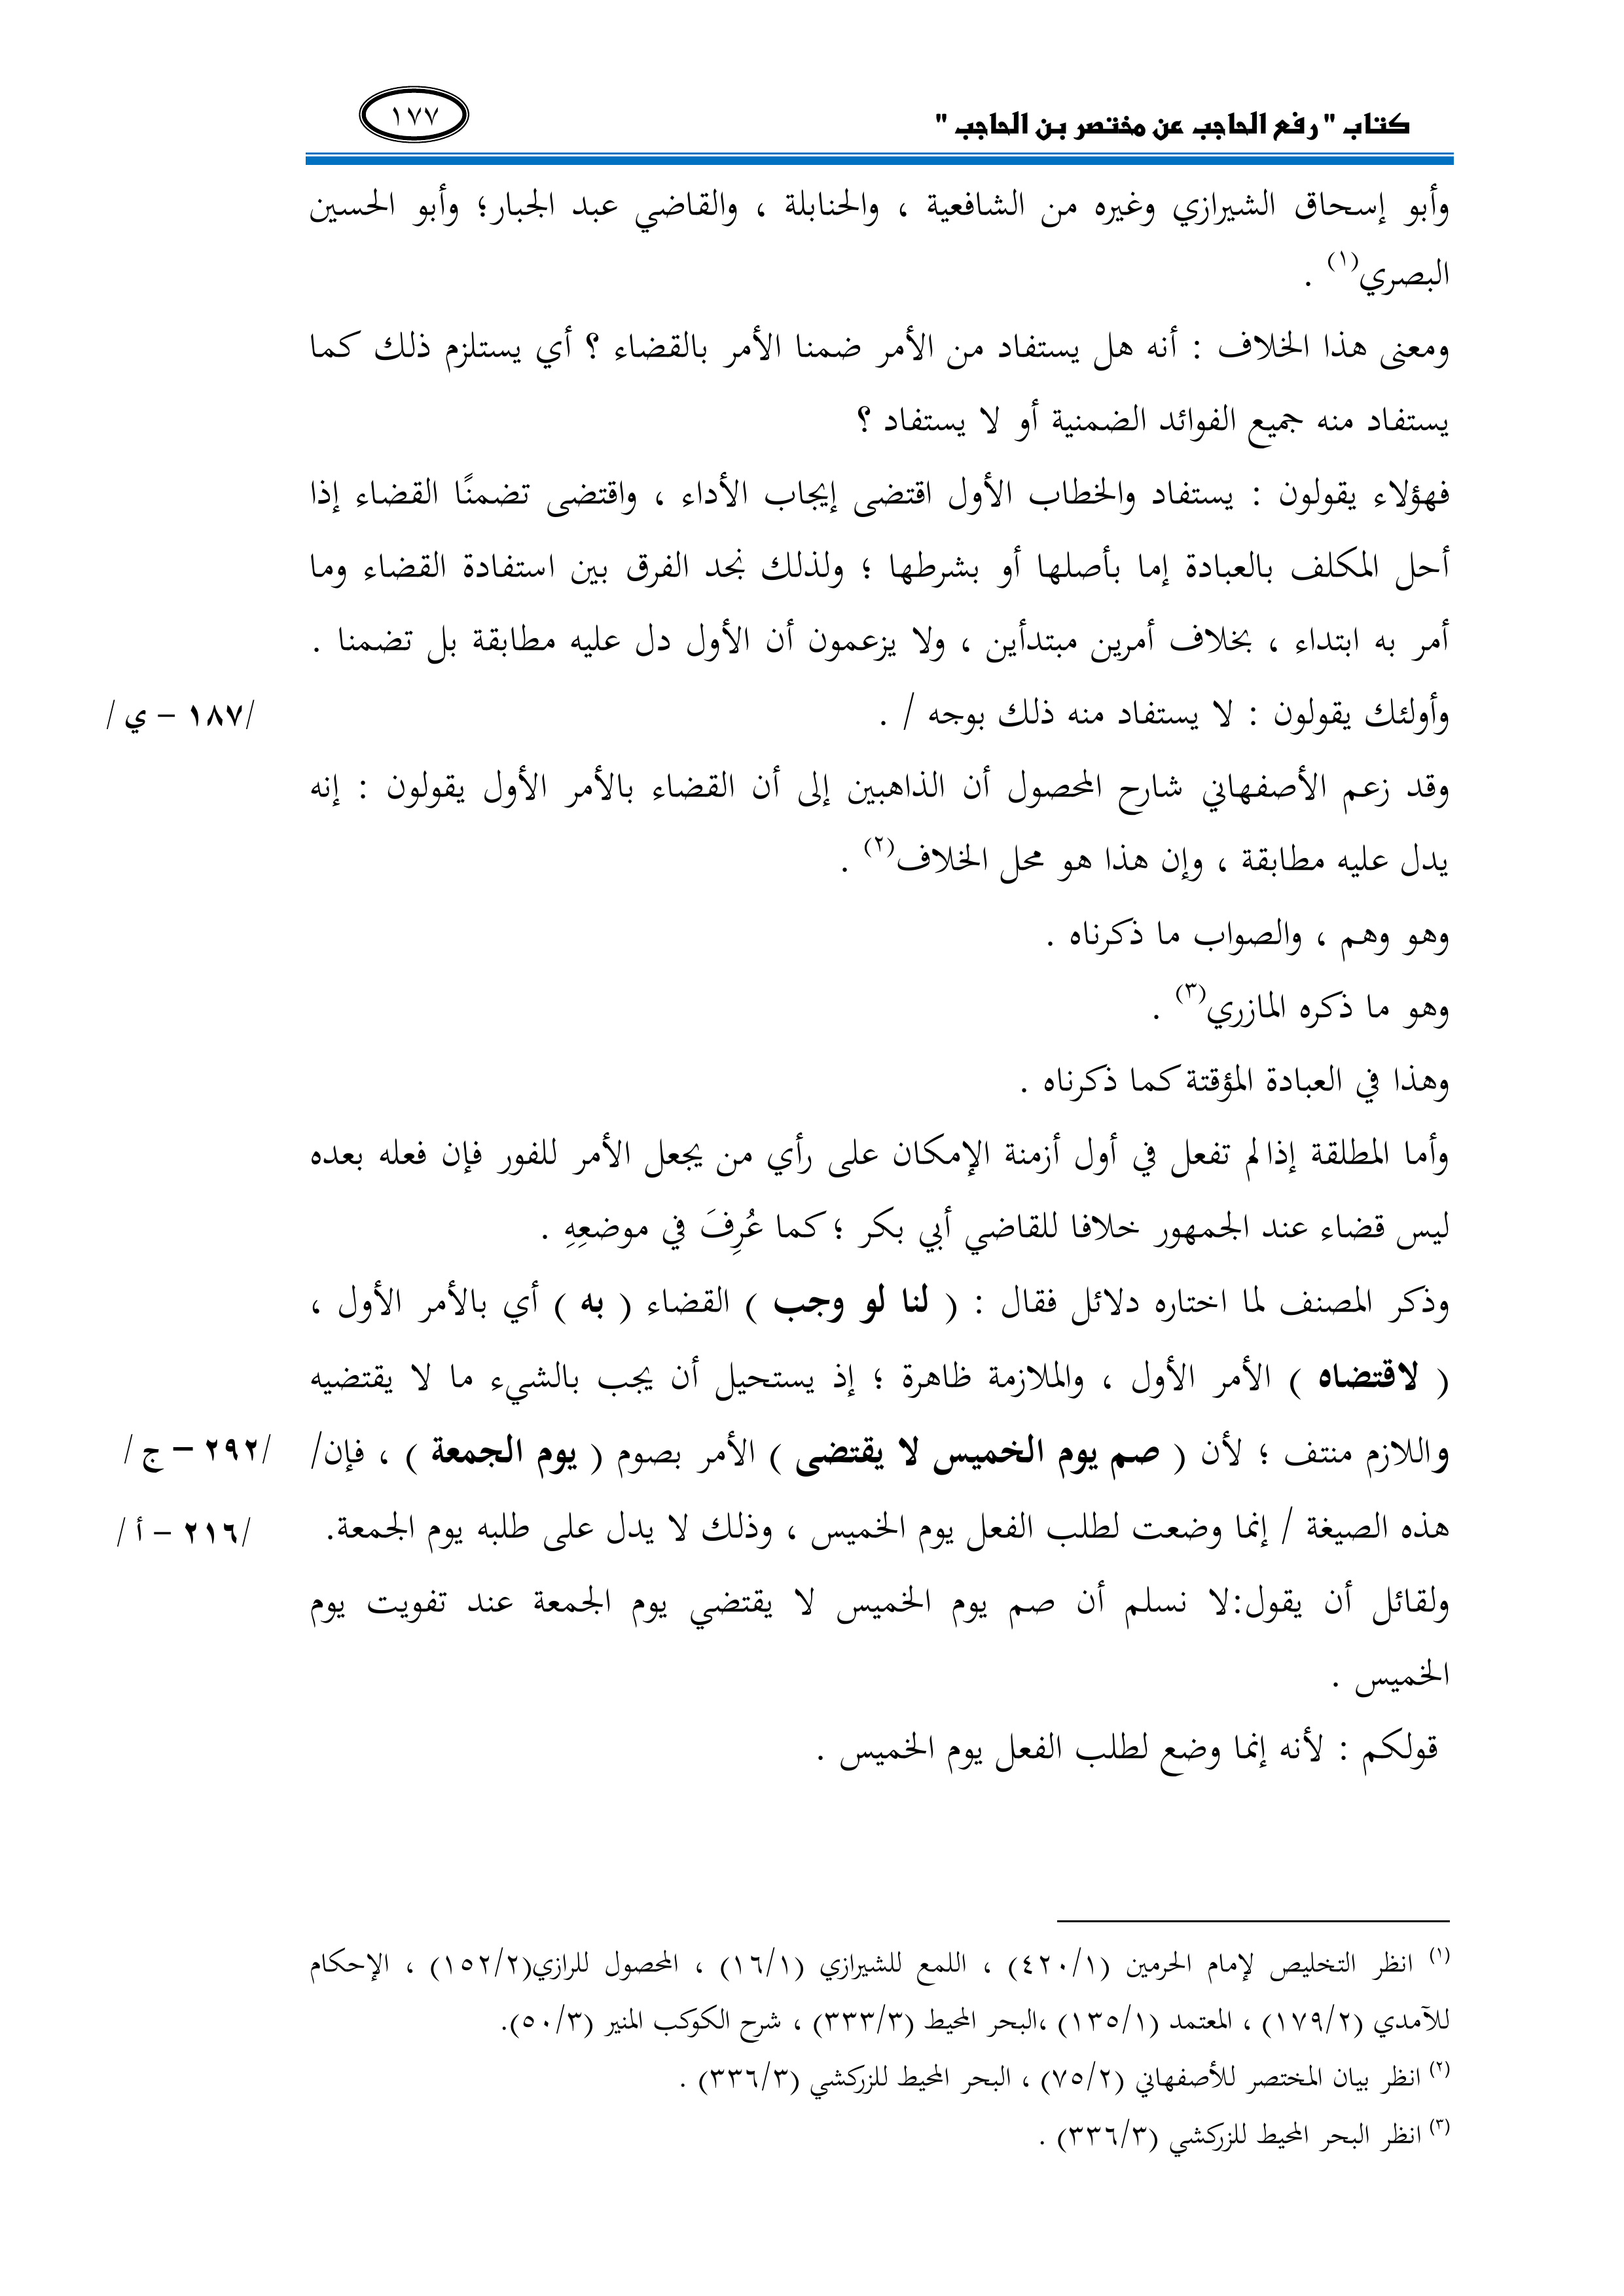 كتاب " رفع الحاجب عن مختصر بن الحاجب "
١٧٧
وأبو إسحاق الشيرازي وغيره من الشافعية ، والحنابلة ، والقاضي عبد الجبار؛ وأبو الحسين
البصري(١) .
ومعنى هذا الخلاف : أنه هل يستفاد من الأمر ضمنا الأمر بالقضاء ؟ أي يستلزم ذلك كما
يستفاد منه جميع الفوائد الضمنية أو لا يستفاد ؟
فهؤلاء يقولون : يستفاد والخطاب الأول اقتضى إيجاب الأداء ، واقتضى تضمنًا القضاء إذا
أحل المكلف بالعبادة إما بأصلها أو بشرطها ؛ ولذلك نجد الفرق بين استفادة القضاء وما
أمر به ابتداء ، بخلاف أمرين مبتدأين ، ولا يزعمون أن الأول دل عليه مطابقة بل تضمنا .
وأولئك يقولون : لا يستفاد منه ذلك بوجه / .
/١٨٧ – ي /
وقد زعم الأصفهاني شارح المحصول أن الذاهبين إلى أن القضاء بالأمر الأول يقولون : إنه
يدل عليه مطابقة ، وإن هذا هو محل الخلاف(٢) .
وهو وهم ، والصواب ما ذكرناه .
وهو ما ذكره المازري(٣) .
وهذا في العبادة المؤقتة كما ذكرناه .
وأما المطلقة إذا لم تفعل في أول أزمنة الإمكان على رأي من يجعل الأمر للفور فإن فعله بعده
ليس قضاء عند الجمهور خلافا للقاضي أبي بكر ؛ كما عُرِفَ في موضعِهِ .
وذكر المصنف لما اختاره دلائل فقال : ( لنا لو وجب ) القضاء ( به ) أي بالأمر الأول ،
( لاقتضاه ) الأمر الأول ، والملازمة ظاهرة ؛ إذ يستحيل أن يجب بالشيء ما لا يقتضيه
واللازم منتف ؛ لأن ( صم يوم الخميس لا يقتضى ) الأمر بصوم ( يوم الجمعة ) ، فإن/
/٢٩٢ – ج /
هذه الصيغة / إنما وضعت لطلب الفعل يوم الخميس ، وذلك لا يدل على طلبه يوم الجمعة.
/٢١٦ – أ /
ولقائل أن يقول:لا نسلم أن صم يوم الخميس لا يقتضي يوم الجمعة عند تفويت يوم
الخميس .
قولكم : لأنه إنما وضع لطلب الفعل يوم الخميس .
(١) انظر التخليص لإمام الحرمين (٤٢٠/١) ، اللمع للشيرازي (١٦/١) ، المحصول للرازي(١٥٢/٢) ، الإحكام
للآمدي (١٧٩/٢) ، المعتمد (١٣٥/١) ،البحر المحيط (٣٣٣/٣) ، شرح الكوكب المنير (٥٠/٣).
(٢) انظر بيان المختصر للأصفهاني (٧٥/٢) ، البحر المحيط للزركشي (٣٣٦/٣) .
(٣) انظر البحر المحيط للزركشي (٣٣٦/٣) .